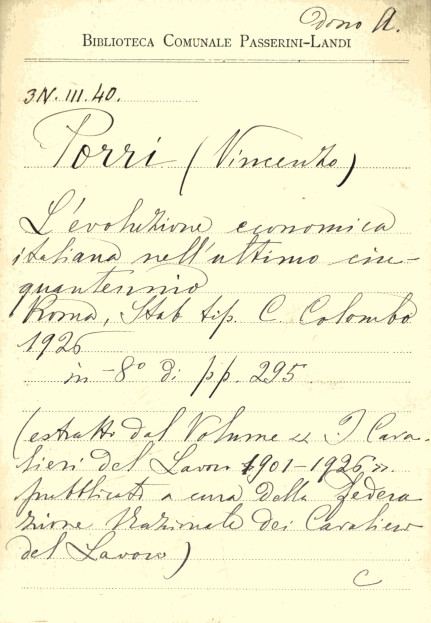 dono A.
BIBLIOTECA COMUNALE PASSERINI-LANDI
3N. III. 40.
Porri (Vincenzo)
L'evoluzione economica
italiana nell'ultimo cin-
quantennio
Roma, Stab tip. C. Colombo
1926
in -8° di pp. 295
(estratto dal Volume « I Cava-
lieri del Lavoro 1901-1926 ».
pubblicati a cura della Federa
zione Nazionale dei Cavalieri
del Lavoro)
C